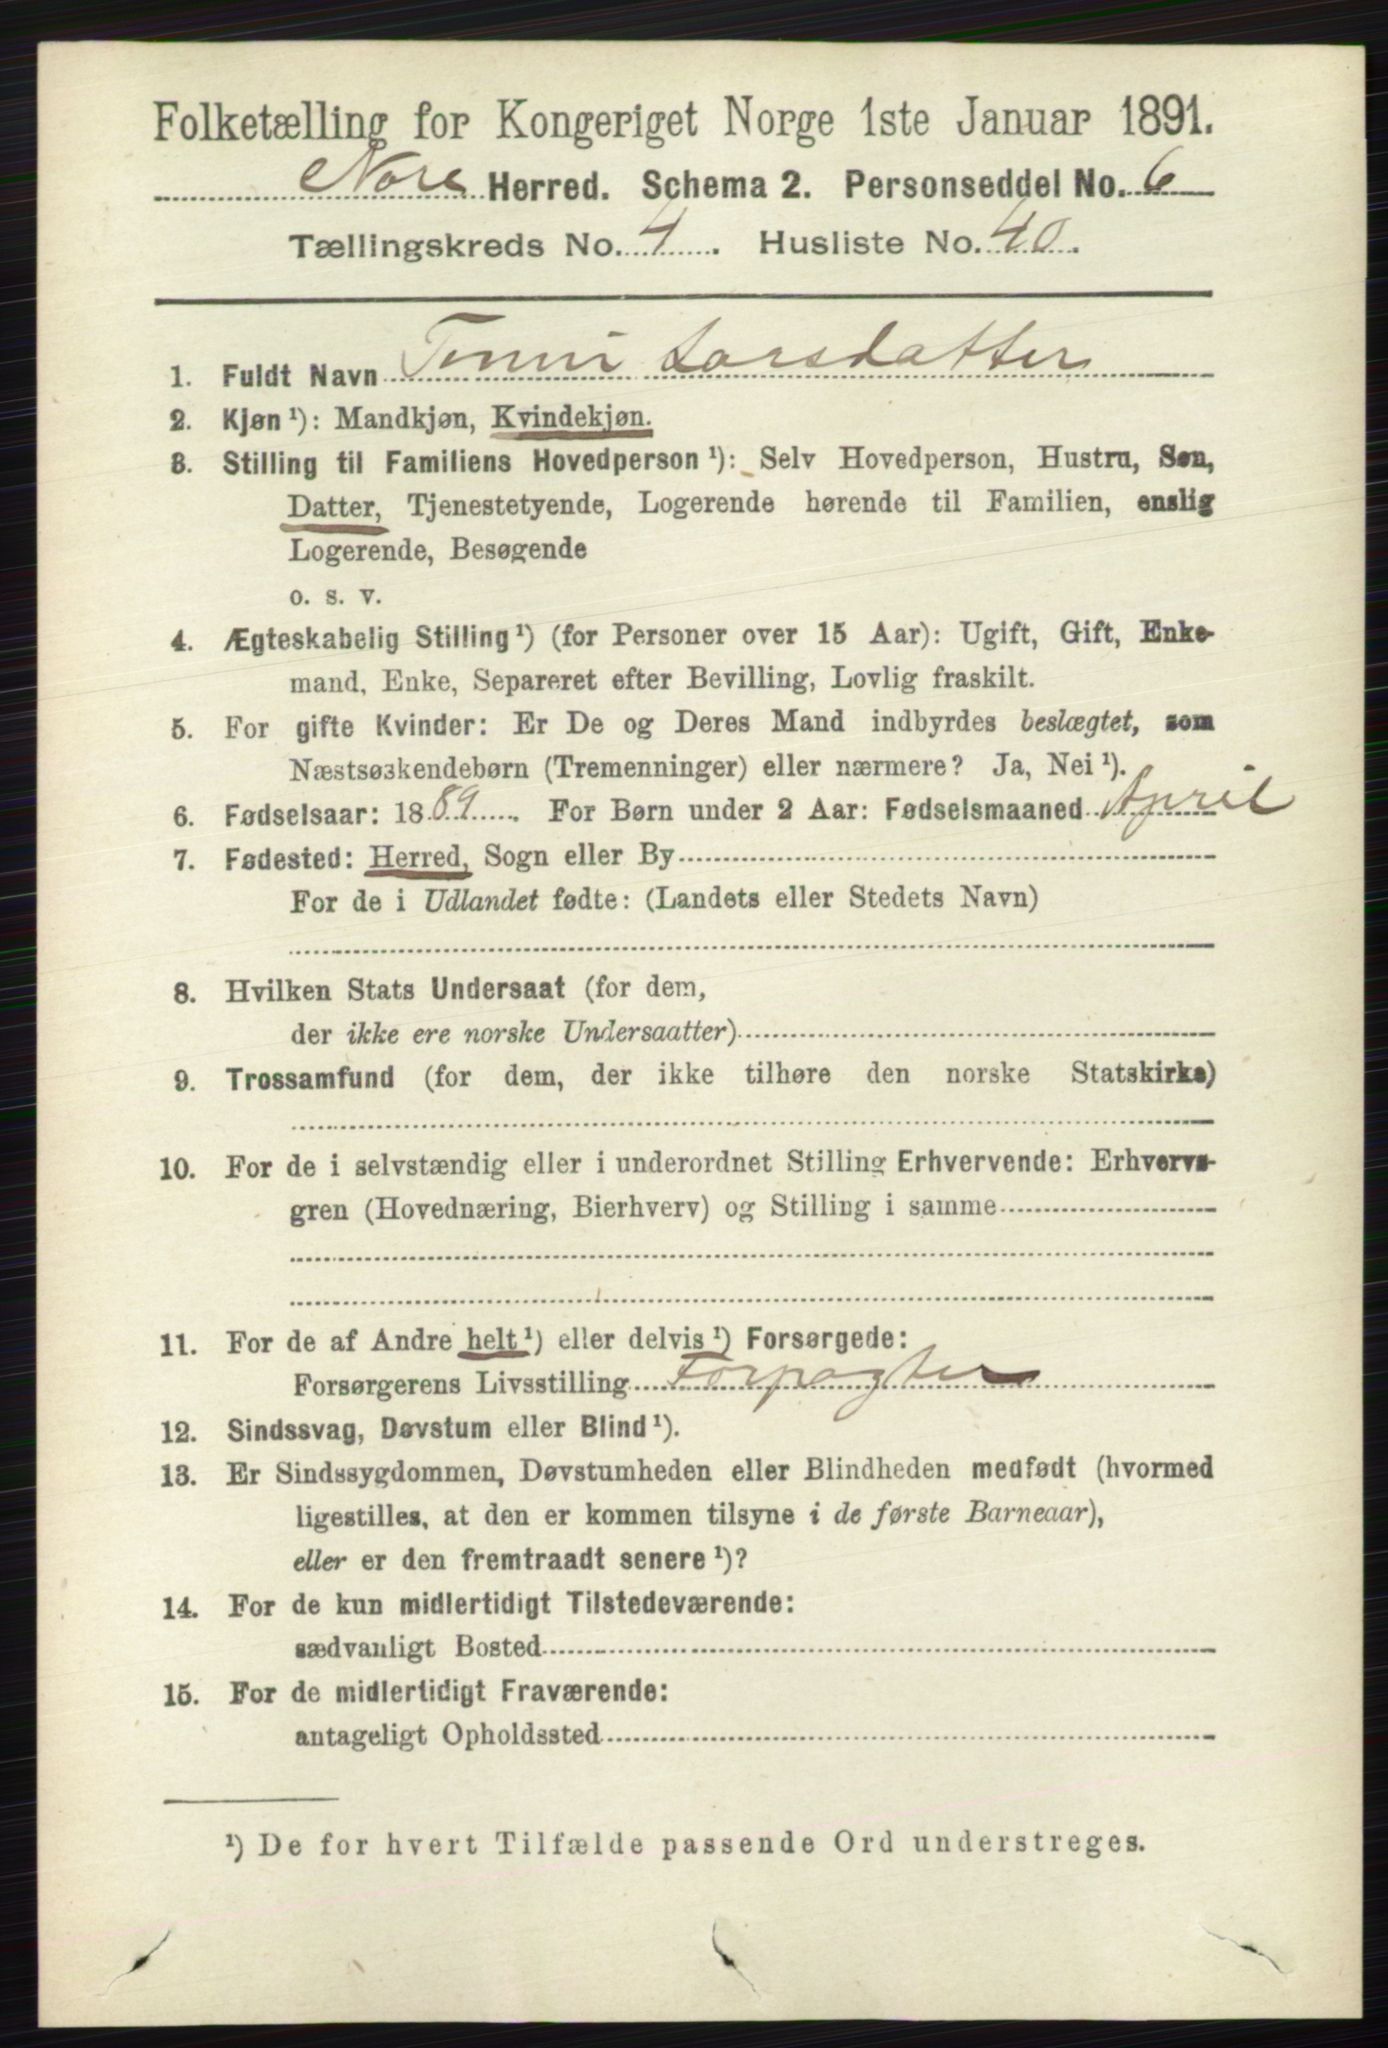 Folketælling for Kongeriget Norge 1ste Januar 1891.
Nore Herred. Schema 2. Personseddel No. 6
Tællingskreds No. 4. Husliste No. 40.
1. Fuldt Navn Larsdatter
2. Kjøn¹): Mandkjøn, Kvindekjøn.
3. Stilling til Familiens Hovedperson¹): Selv Hovedperson, Hustru, Søn,
Datter, Tjenestetyende, Logerende hørende til Familien, enslig
Logerende, Besøgende
o. s. v.
4. Ægteskabelig Stilling¹) (for Personer over 15 Aar): Ugift, Gift, Enke-
mand, Enke, Separeret efter Bevilling, Lovlig fraskilt.
5. For gifte Kvinder: Er De og Deres Mand indbyrdes beslægtet, som
Næstsøskendebørn (Tremenninger) eller nærmere? Ja, Nei¹).
6. Fødselsaar: 1889. For Børn under 2 Aar: Fødselsmaaned April
7. Fødested: Herred, Sogn eller By
For de i Udlandet fødte: (Landets eller Stedets Navn)
8. Hvilken Stats Undersaat (for dem,
der ikke ere norske Undersaatter)
9. Trossamfund (for dem, der ikke tilhøre den norske Statskirke)
10. For de i selvstændig eller i underordnet Stilling Erhvervende: Erhvervs-
gren (Hovednæring, Bierhverv) og Stilling i samme
11. For de af Andre helt¹) eller delvis¹) Forsørgede:
Forsørgerens Livsstilling Forpagter
12. Sindssvag, Døvstum eller Blind¹).
13. Er Sindssygdommen, Døvstumheden eller Blindheden medfødt (hvormed
ligestilles, at den er kommen tilsyne i de første Barneaar),
eller er den fremtraadt senere¹)?
14. For de kun midlertidigt Tilstedeværende:
sædvanligt Bosted
15. For de midlertidigt Fraværende:
antageligt Opholdssted
¹) De for hvert Tilfælde passende Ord understreges.